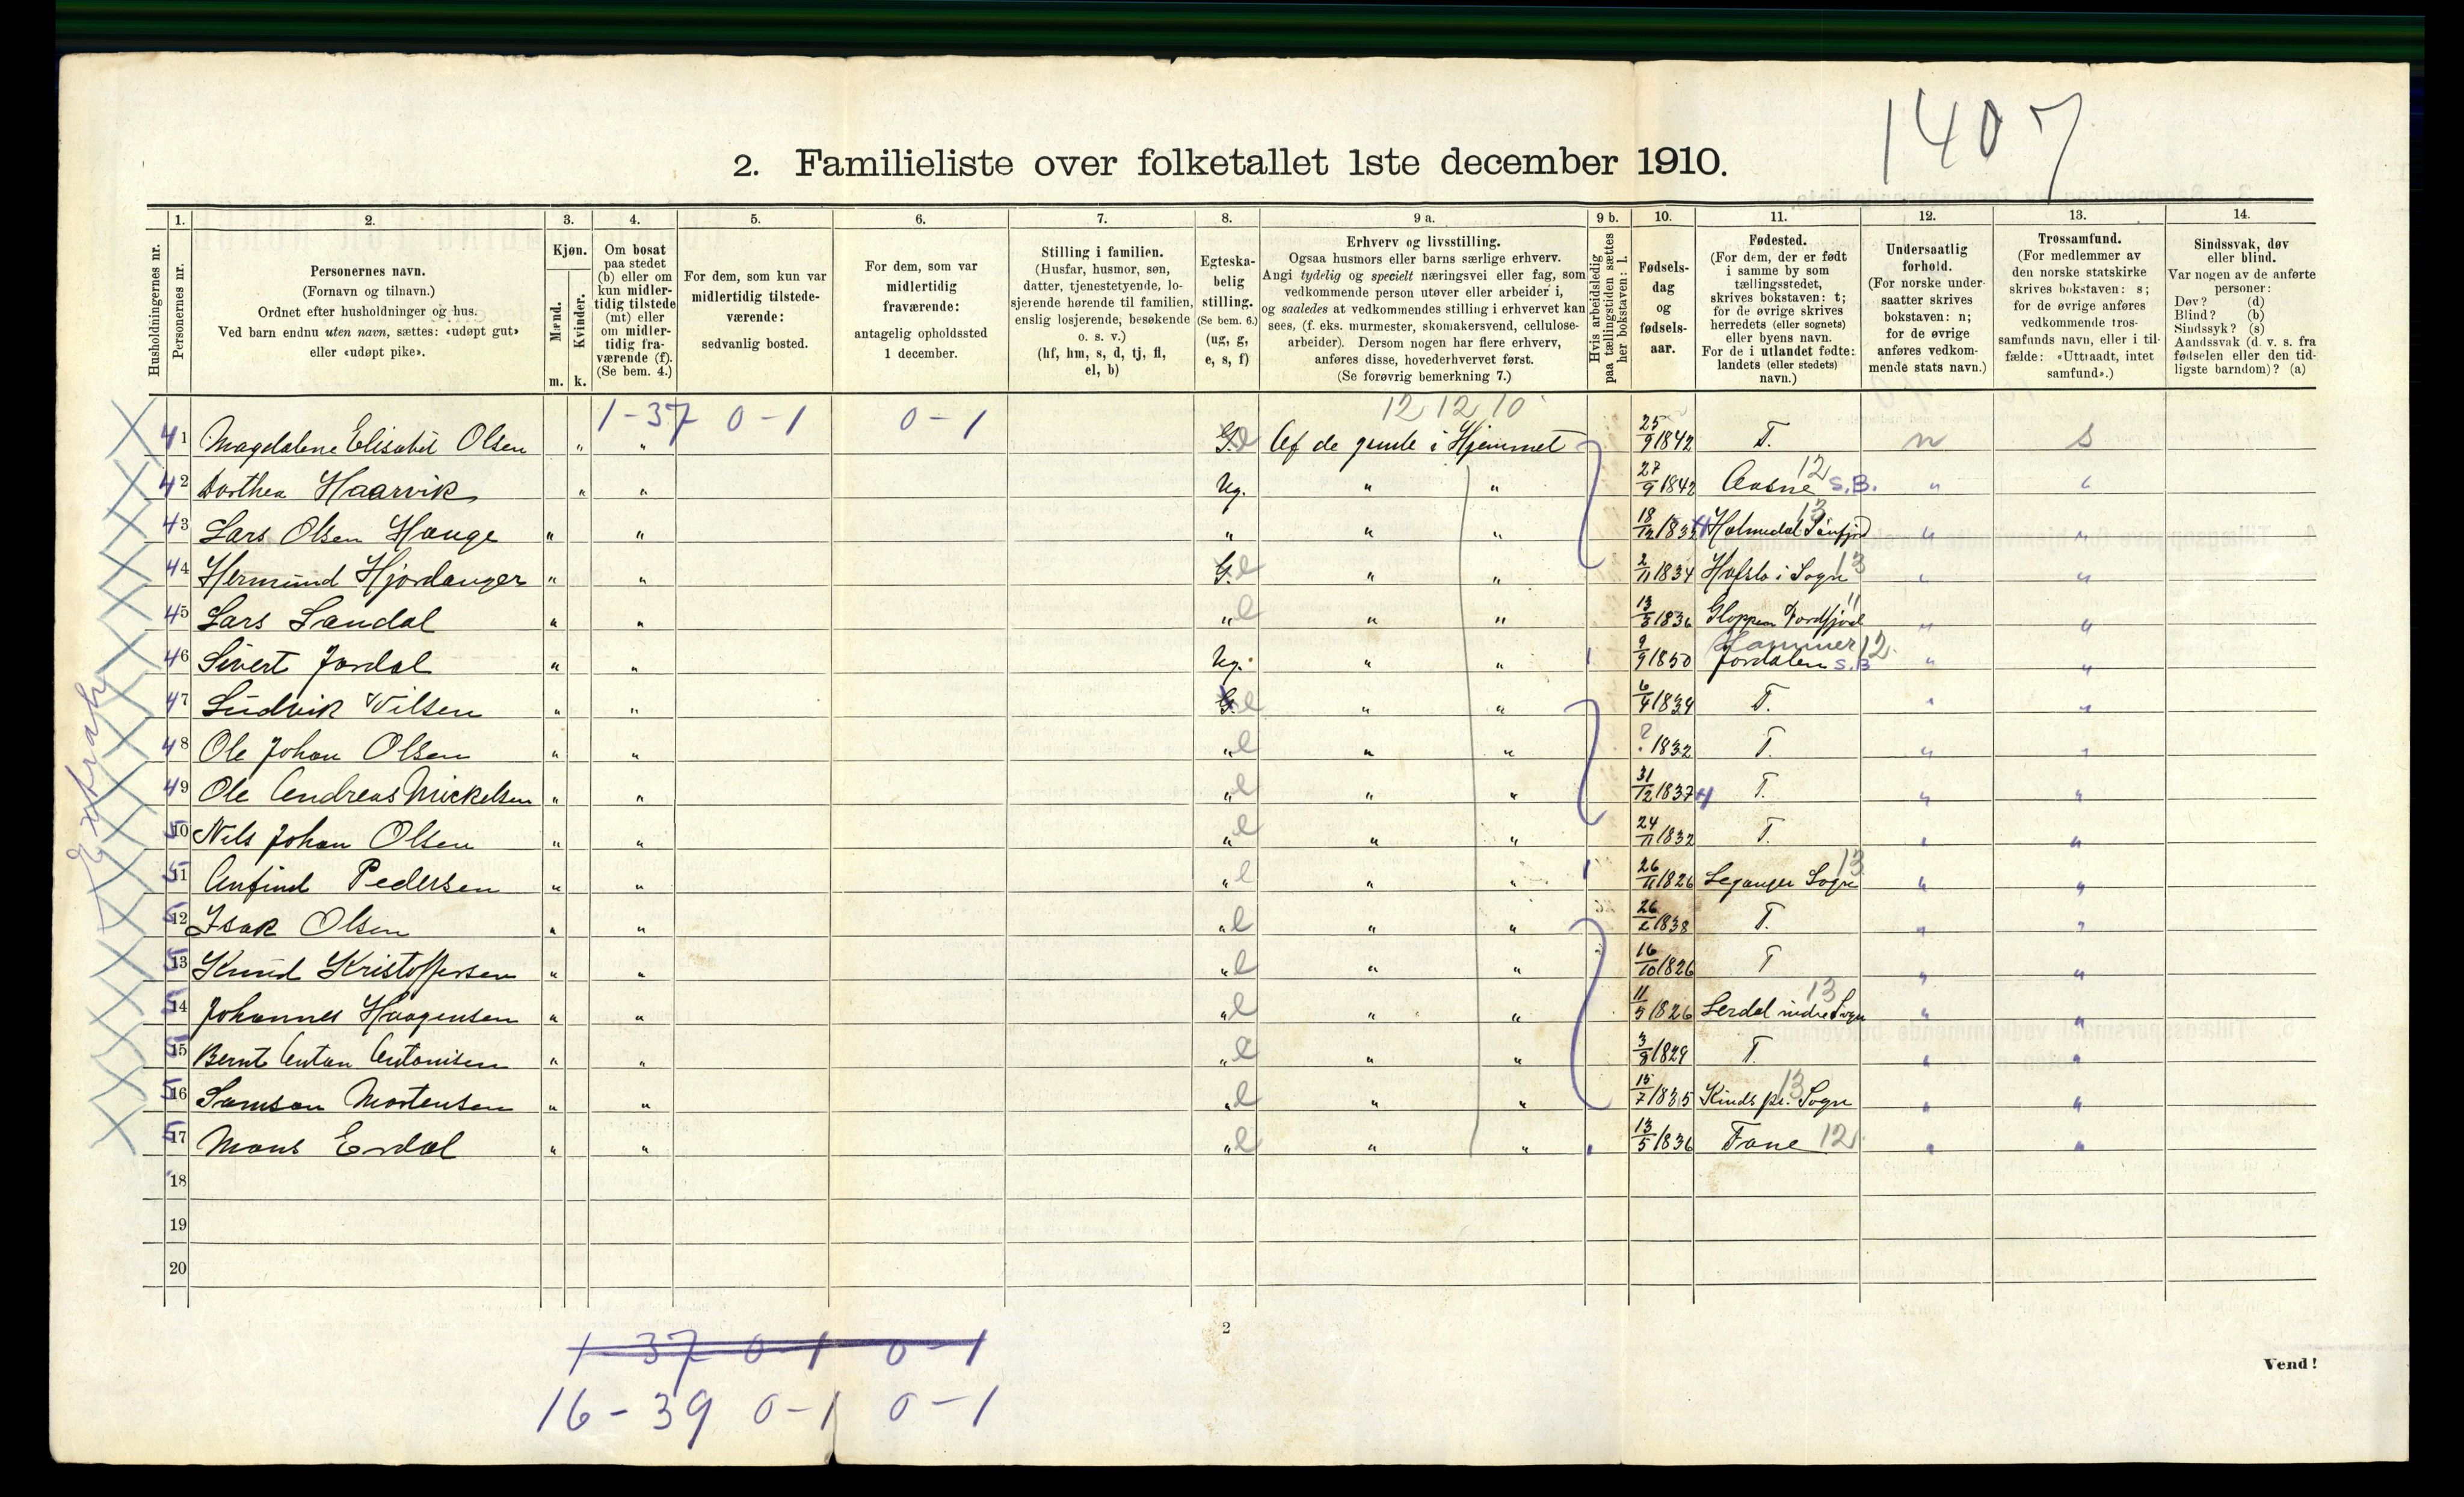 1407
2. Familieliste over folketallet 1ste december 1910.
1. 2. 3. 4. 5. 6. 7. 8. 9 a. 9 b. 10. 11. 12. 13. 14.
Husholdningernes nr.
Personernes nr.
Personernes navn.
(Fornavn og tilnavn.)
Ordnet efter husholdninger og hus.
Ved barn endnu uten navn, sættes: «udøpt gut»
eller «udøpt pike».
Kjøn.
Mænd.
Kvinder.
m. k.
Om bosat
paa stedet
(b) eller om
kun midler-
tidig tilstede
(mt) eller
om midler-
tidig fra-
værende (f).
(Se bem. 4.)
For dem, som kun var
midlertidig tilstede-
værende:
sedvanlig bosted.
For dem, som var
midlertidig
fraværende:
antagelig opholdssted
1 december.
Stilling i familien.
(Husfar, husmor, søn,
datter, tjenestetyende, lo-
sjerende hørende til familien,
enslig losjerende, besøkende
o. s. v.)
(hf, hm, s, d, tj, fl,
el, b)
Egteska-
belig
stilling.
(Se bem. 6.)
(ug, g,
e, s, f)
Erhverv og livsstilling.
Ogsaa husmors eller barns særlige erhverv.
Angi tydelig og specielt næringsvei eller fag, som
vedkommende person utøver eller arbeider i,
og saaledes at vedkommendes stilling i erhvervet kan
sees, (f. eks. murmester, skomakersvend, cellulose-
arbeider). Dersom nogen har flere erhverv,
anføres disse, hovederhvervet først.
(Se forøvrig bemerkning 7.)
Hvis arbeidsledig
paa tællingstiden sættes
her bokstaven: l.
Fødsels-
dag
og
fødsels-
aar.
Fødested.
(For dem, der er født
i samme by som
tællingsstedet,
skrives bokstaven: t;
for de øvrige skrives
herredets (eller sognets)
eller byens navn.
For de i utlandet fødte:
landets (eller stedets)
navn.)
Undersaatlig
forhold.
(For norske under-
saatter skrives
bokstaven: n;
for de øvrige
anføres vedkom-
mende stats navn.)
Trossamfund.
(For medlemmer av
den norske statskirke
skrives bokstaven: s;
for de øvrige anføres
vedkommende tros-
samfunds navn, eller i til-
fælde: «Uttraadt, intet
samfund».)
Sindssvak, døv
eller blind.
Var nogen av de anførte
personer:
Døv? (d)
Blind? (b)
Sindssyk? (s)
Aandssvak (d. v. s. fra
fødselen eller den tid-
ligste barndom)? (a)
1-37 0-1 0-1 12 12 10
41 Magdalene Elisabet Olsen " " G. e Af de gamle i Hjemmet 25/9 1842 T. n s
42 Dorthea Haarvik " " Ug. " " 27/9 1842 12 S.B. "
43 Lars Olsen Hauge " " " " " 18/12 183 Holmedal Sønfjord 13 " "
44 Hermund Hjordanger " " G. e " " 2/11 1834 Hafslo i Sogn 13 " "
45 Lars Sandal " " " e " " 13/3 1836 Gloppen Nordfjord 11 " "
46 Sivert Jordal " " Ug. " " 9/9 1850 Hammer 12 Jordalen S.B " "
47 Ludvik Nilsen " " e " " 6/4 1834 T. " "
48 Ole Johan Olsen " " " e " " ? 1832 T. " "
49 Ole Andreas Mickelsen " " " e " " 31/12 1837 T. " "
50 Nils Johan Olsen " " " e " " 24/11 1832 T. " "
51 Anfind Pedersen " " " e " " 26/11 1826 Leganger Sogn 13 " "
52 Isak Olsen " " " e " " 26/2 1838 T. " "
53 Knud Kristoffersen " " " e " " 16/10 1826 T " "
54 Johannes Haagensen " " " e " " 11/5 1826 Lerdal indre Sogn 13 " "
55 Bernt Anton Antonisen " " " e " " 3/8 1829 T. " "
56 Samson Mortensen " " " e " " 15/7 1835 Kinds pr. Sogn 13 " "
57 Mons Erdal " " " e " " 13/5 1836 Fane 12 " "
18
19
20
2
1-37 0-1 0-1
Vend!
16-39 0-1 0-1